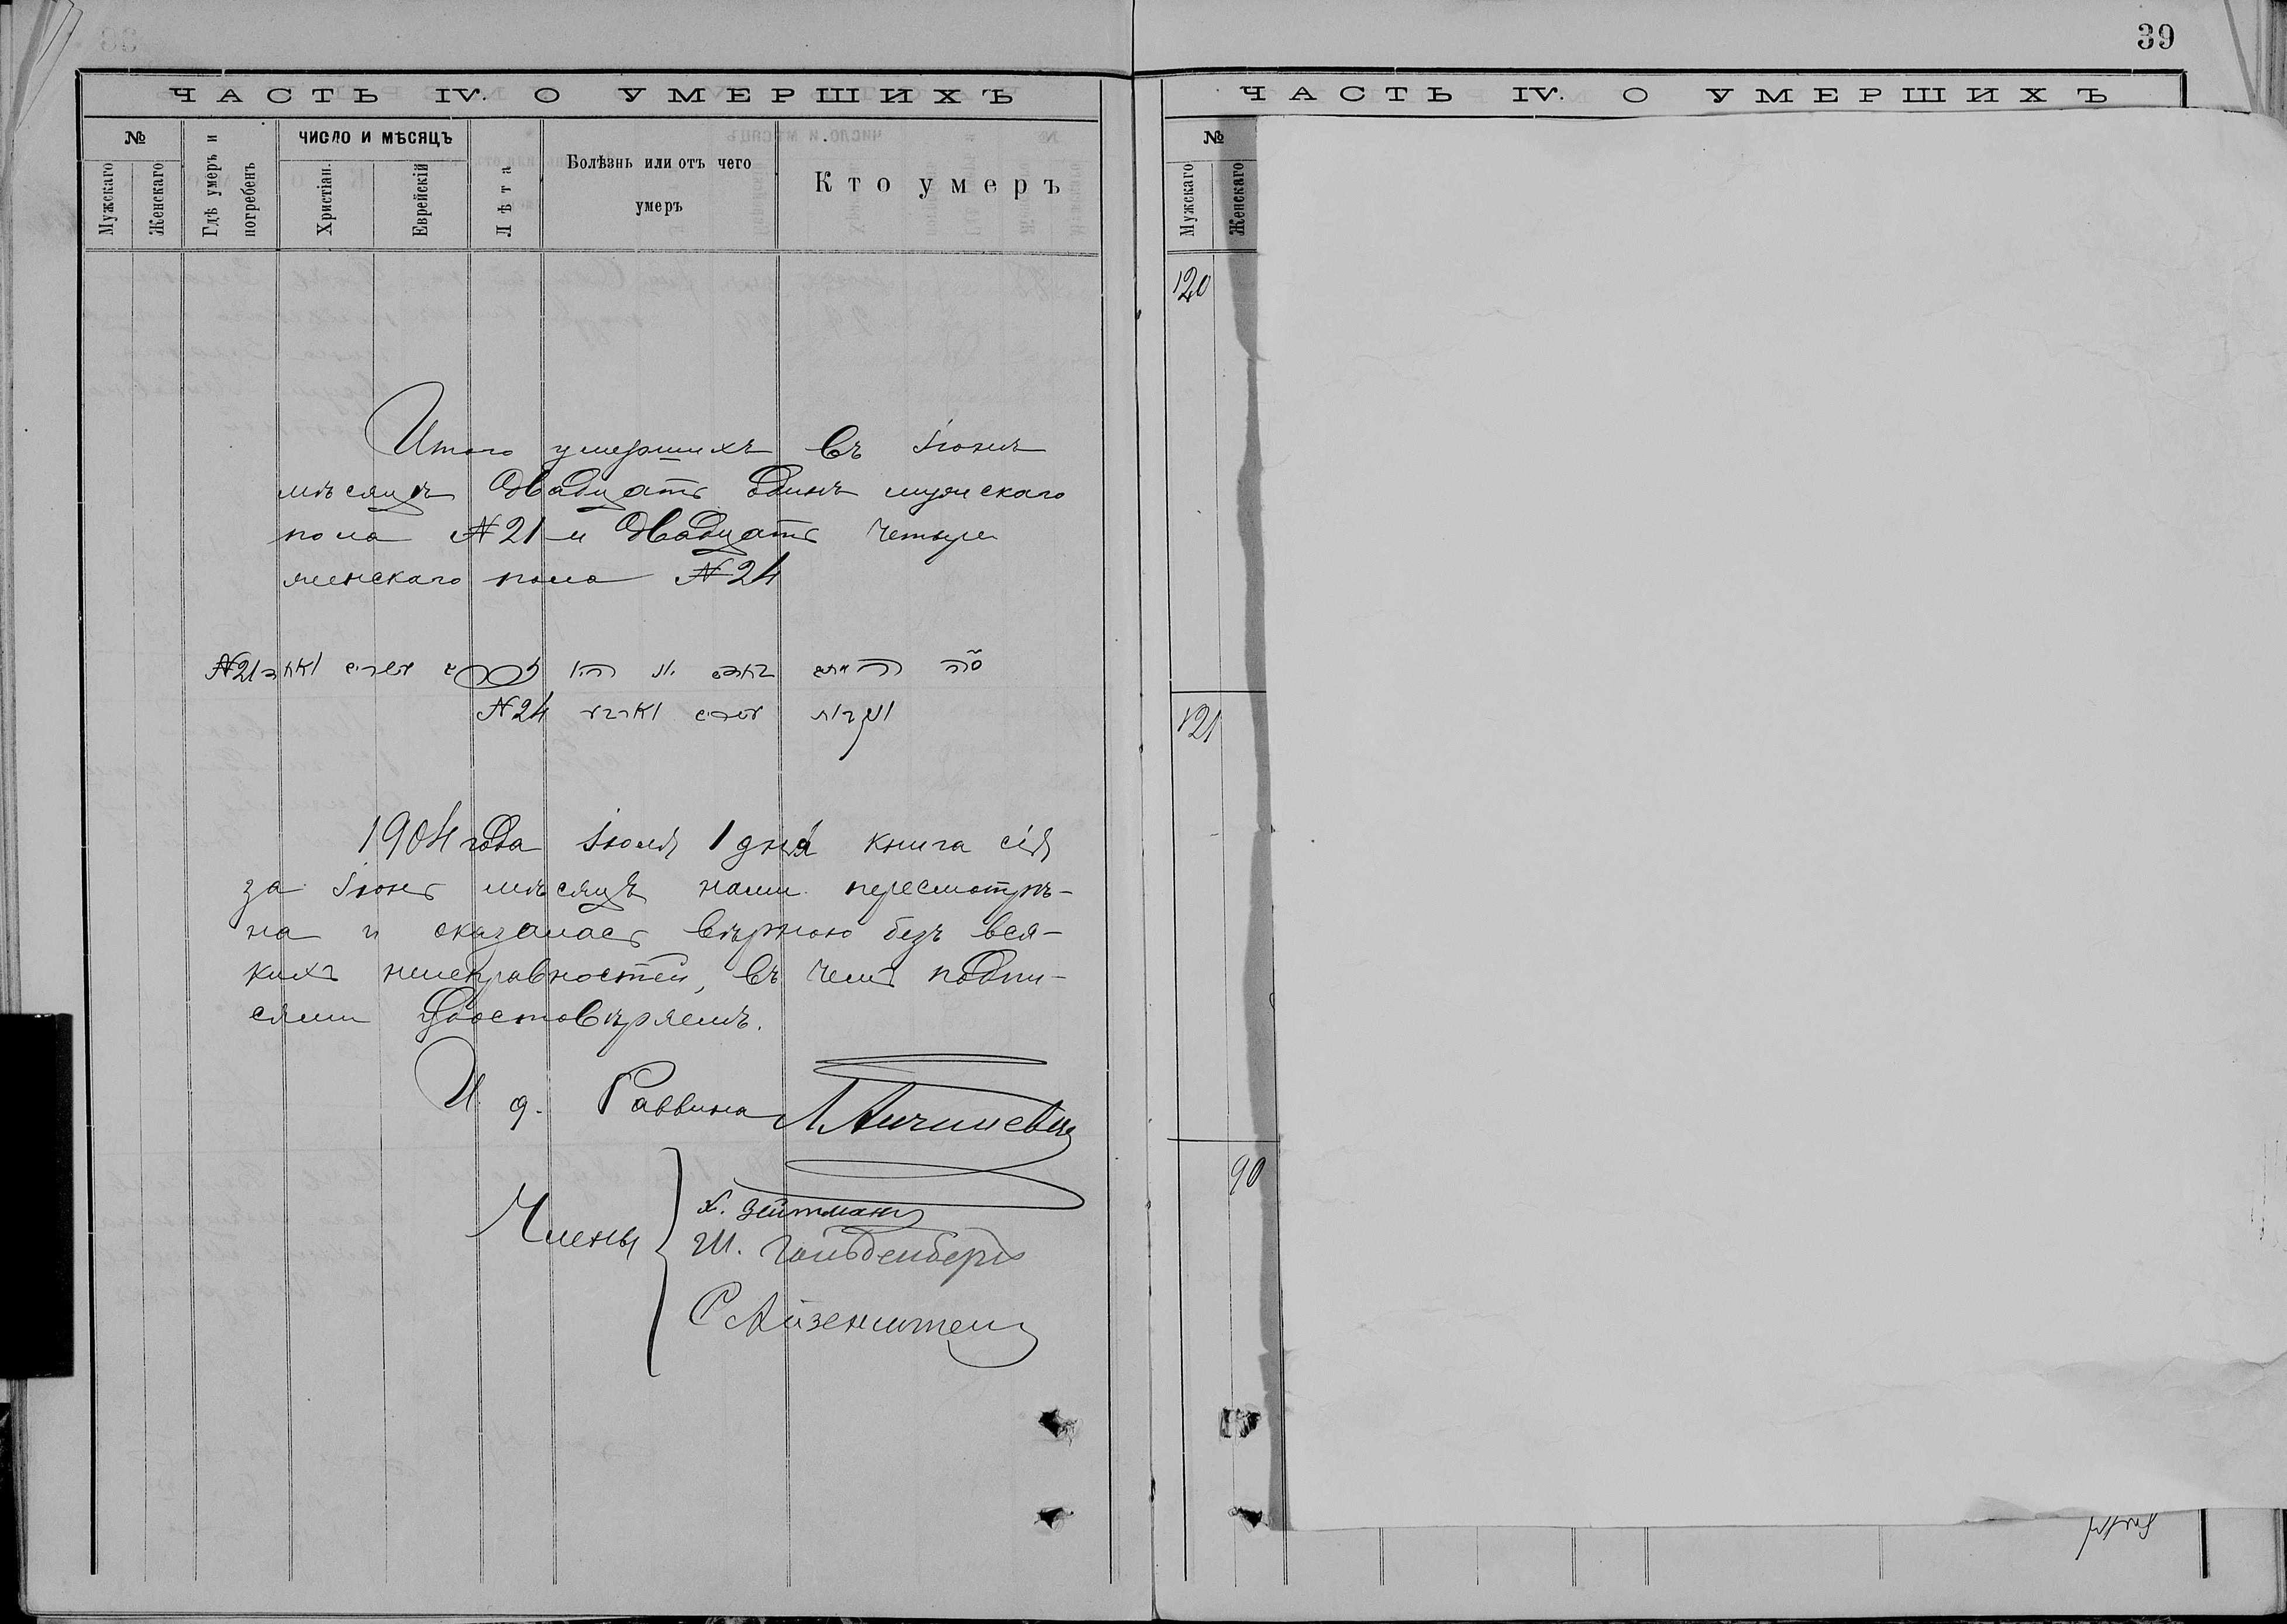 39
ЧАСТЬ IV. О УМЕРШИХЪ
№
Мужскаго
Женскаго
Гдѣ умеръ и погребенъ
ЧИСЛО И МѢСЯЦЪ
Христіан.
Еврейскій
Лѣта
Болѣзнь или отъ чего
умеръ
Кто умеръ
Итого умершихъ въ Іюнѣ
мѣсяцѣ двадцать одинъ мужскаго
пола №21 и двадцать четыре
женскаго пола №24
№21
№24
1904 года Іюля 1 дня книга сія
за Іюнь мѣсяцъ нами пересмотрѣ-
на и оказалась вѣрною безъ вся-
кихъ неисправностей, въ чемъ подпи-
сями удостовѣряемъ.
И. д. Раввина
Члены
Х. Зейтманъ
Ш. Гольденбергъ
С Айзенштейн
ЧАСТЬ IV. О УМЕРШИХЪ
№
Мужскаго
Женскаго
120
121
90